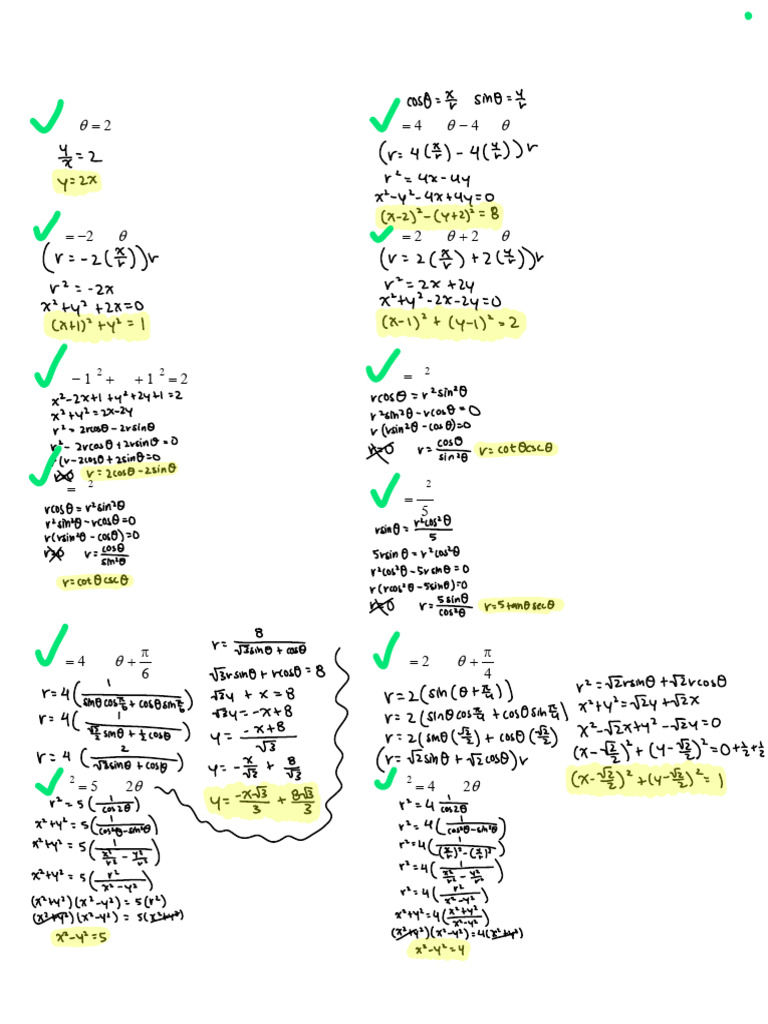 θ = 2
y/x = 2
y = 2x
cosθ = x/r sinθ = y/r
= 4 θ − 4 θ
(r = 4(x/r) − 4(y/r))r
r² = 4x − 4y
x² − y² − 4x + 4y = 0
(x−2)² − (y+2)² = 8
= −2 θ
(r = −2(x/r))r
r² = −2x
x² + y² + 2x = 0
(x+1)² + y² = 1
= 2 θ + 2 θ
(r = 2(x/r) + 2(y/r))r
r² = 2x + 2y
x² + y² − 2x − 2y = 0
(x−1)² + (y−1)² = 2
− 1 ² + + 1 ² = 2
x² − 2x + 1 + y² + 2y + 1 = 2
x² + y² = 2x − 2y
r² = 2rcosθ − 2rsinθ
r² − 2rcosθ + 2rsinθ = 0
r(r − 2cosθ + 2sinθ = 0
r=0 r = 2cosθ − 2sinθ
= ²
rcosθ = r²sin²θ
r²sin²θ − rcosθ = 0
r(rsin²θ − cosθ) = 0
r=0 r = cosθ/sin²θ r = cotθcscθ
= ²
rcosθ = r²sin²θ
r²sin²θ − rcosθ = 0
r(rsin²θ − cosθ) = 0
r=0 r = cosθ/sin²θ
r = cotθcscθ
= ²/5
rsinθ = r²cos²θ/5
5rsinθ = r²cos²θ
r²cos²θ − 5rsinθ = 0
r(rcos²θ − 5sinθ) = 0
r=0 r = 5sinθ/cos²θ r = 5tanθsecθ
= 4 θ + π/6
r = 4(1/(sinθcosπ/6 + cosθsinπ/6))
r = 4(1/(√3/2 sinθ + ½cosθ))
r = 4(2/(√3sinθ + cosθ))
r = 8/(√3sinθ + cosθ)
√3rsinθ + rcosθ = 8
√3y + x = 8
√3y = −x + 8
y = (−x+8)/√3
y = −x/√3 + 8/√3
y = −x√3/3 + 8√3/3
= 2 θ + π/4
r = 2(sin(θ + π/4))
r = 2(sinθcosπ/4 + cosθsinπ/4)
r = 2(sinθ(√2/2) + cosθ(√2/2)
(r = √2sinθ + √2cosθ)r
r² = √2rsinθ + √2rcosθ
x² + y² = √2y + √2x
x² − √2x + y² − √2y = 0
(x − √2/2)² + (y − √2/2)² = 0 + ½ + ½
(x − √2/2)² + (y − √2/2)² = 1
² = 5 2θ
r² = 5(1/cos2θ)
x² + y² = 5(1/(cos²θ − sin²θ))
x² + y² = 5(1/(x²/r² − y²/r²))
x² + y² = 5(r²/(x² − y²))
(x² + y²)(x² − y²) = 5(r²)
(x² + y²)(x² − y²) = 5(x² + y²)
x² − y² = 5
² = 4 2θ
r² = 4 1/cos2θ
r² = 4(1/(cos²θ − sin²θ))
r² = 4(1/((x/r)² − (y/r)²))
r² = 4(1/(x²/r² − y²/r²))
r² = 4(r²/(x² − y²))
x² + y² = 4((x² + y²)/(x² − y²))
(x² + y²)(x² − y²) = 4(x² + y²)
x² − y² = 4